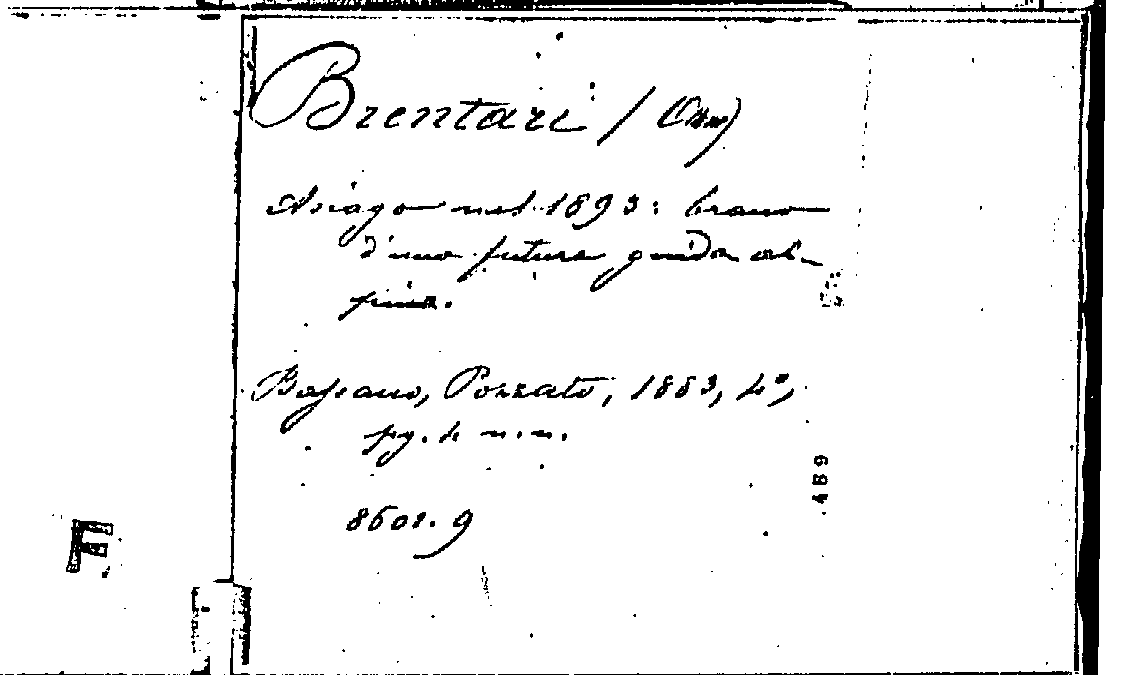 Brentari / (Ottone)
Asiago nel 1893: brano
d'una futura guida al-
pina.
Bassano, Pozzato, 1883, 4°,
pg. 4 n.n.
8601. 9
489
F